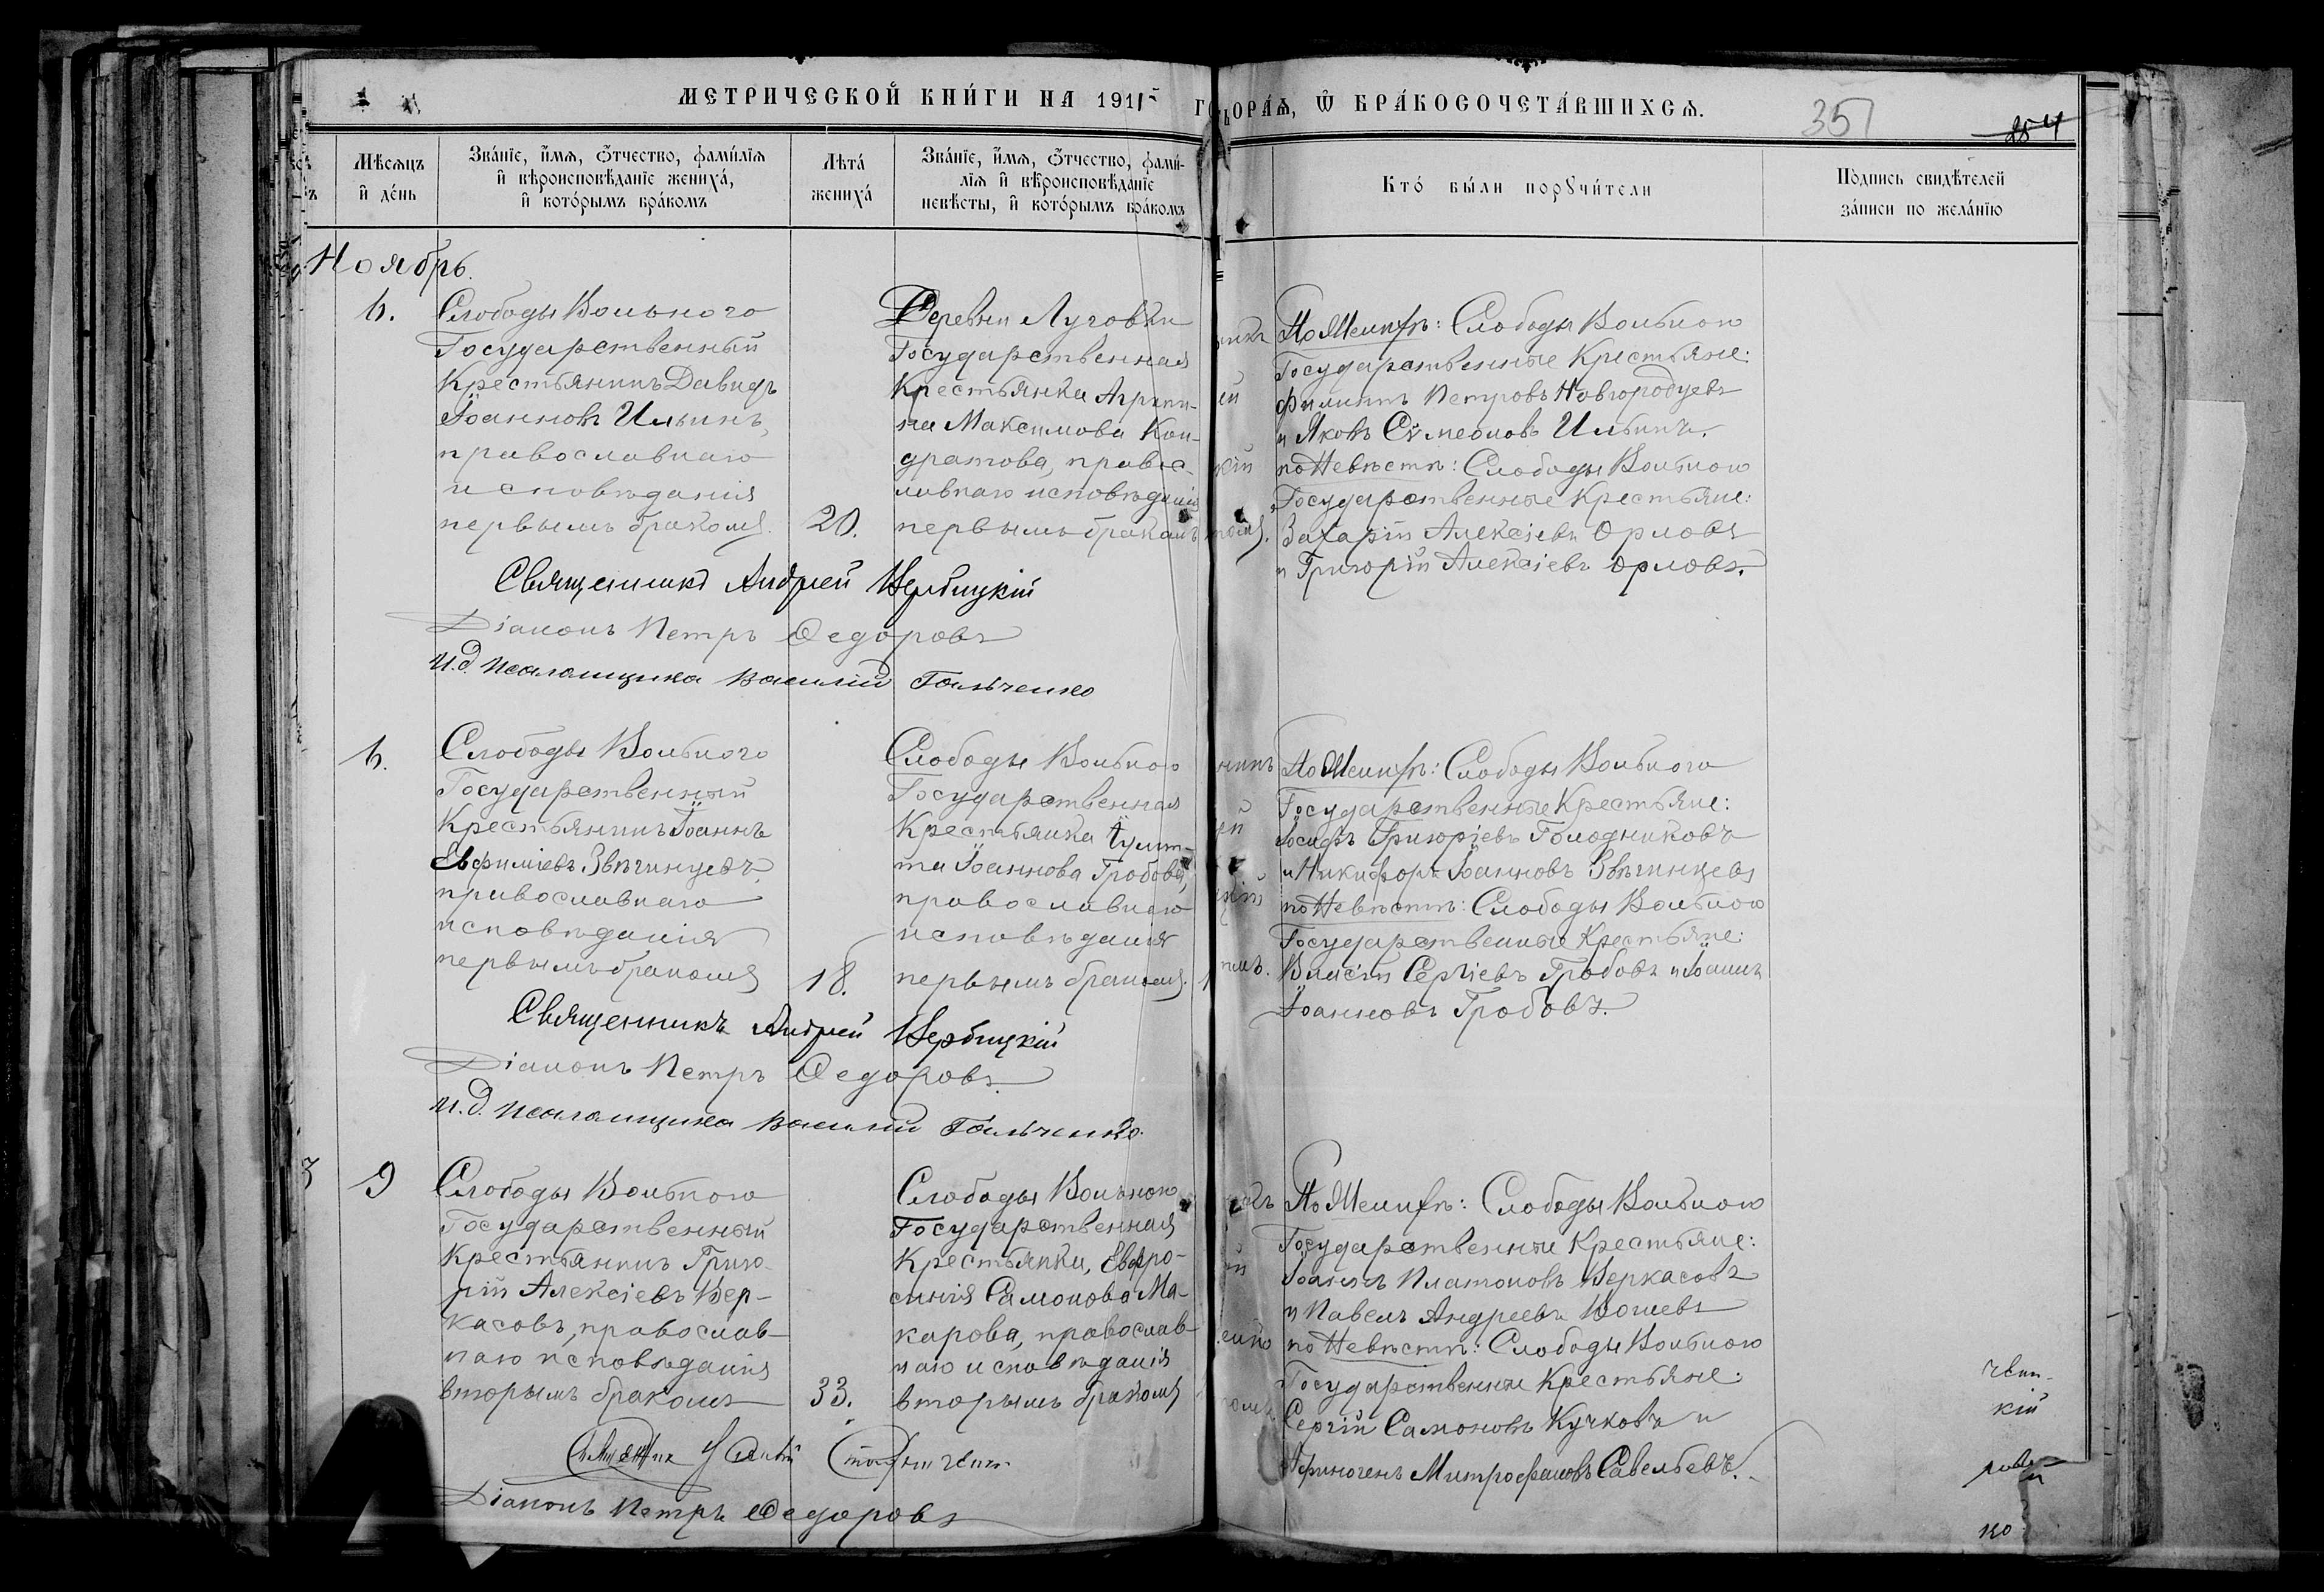 МЕТРИЧЕСКОЙ КНИ́ГИ НА 191
ОРА́Я, Ѿ БРА́КОСОЧЕТА́ВШИХСЯ.
351
254
Мѣсяцъ
и҆ де́нь
Зва́нїе, и҆́мя, ѻ҆́тчество, фами́лїя
и҆ вѣроисповѣ́данїе жениха̀,
и҆ кото́рымъ бра́комъ
Лѣта̀
жениха̀
Зва́нїе, и҆́мя, ѻ҆́тчество, фами́-
лїя и҆ вѣроисповѣ́данїе
невѣ́сты, и҆ кото́рымъ бра́комъ
Кто́ бы́ли порꙋчи́тели
По́дпись свидѣ́телей
за́писи по жела́нїю
Ноябрь.
6.
Слободы Вольного
Государственный
Крестьянинъ Давидъ
Іоанновъ Ильинъ,
православнаго
исповѣданія
первымъ бракомъ.
20.
Деревни Луговки
Государственная
Крестьянка Агрипи-
на Максимова Кон-
дратова, правос-
лавнаго исповѣданія
первымъ бракомъ
По Женихѣ: Слободы Вольного
Государственные Крестьяне:
Филиппъ Петровъ Новгородцевъ
и Яковъ Сѵмеоновъ Ильинъ.
по Невѣстѣ: Слободы Вольного
Государственные Крестьяне:
Захарій Алексіевъ Орловъ
и Григорій Алексіевъ Орловъ.
Священникъ Андрей Вербицкій
Діаконъ Петръ Ѳедоровъ
И.д. псаломщика Василій Гальченко
6.
Слободы Вольного
Государственный
Крестьянинъ Іоаннъ
Евфиміевъ Звѣгинцевъ,
православнаго
исповѣданія
первымъ бракомъ
18.
Слободы Вольного
Государственная
Крестьянка Іулит-
та Іоаннова Гробова,
православнаго
исповѣданія
первымъ бракомъ.
По Женихѣ: Слободы Вольного
Государственные Крестьяне:
Іосифъ Григоріевъ Голодниковъ
и Никифоръ Іоанновъ Звѣгинцевъ
по Невѣстѣ: Слободы Вольного
Государственные Крестьяне:
Власій Сергіевъ Гробовъ и Іоаннъ
Іоанновъ Гробовъ.
Священникъ Андрей Вербицкій
Діаконъ Петръ Ѳедоровъ.
И.д. псаломщика Василій Гальченко.
9
Слободы Вольного
Государственный
Крестьянинъ Григо-
рій Алексіевъ Вер-
касовъ, православ-
наго исповѣданія
вторымъ бракомъ
33.
Слободы Вольного
Государственная
Крестьянка, Евфро-
синія Самонова Ма-
карова, православ-
наго исповѣданія
вторымъ бракомъ
По Женихѣ: Слободы Вольного
Государственные Крестьяне:
Іоаннъ Платоновъ Веркасовъ
и Павелъ Андреевъ
по Невѣстѣ: Слободы Вольного
Государственные Крестьяне:
Сергій Самоновъ Кучковъ и
Афиногенъ Митрофановъ Савельевъ.
Діаконъ Петръ Ѳедоровъ
кій